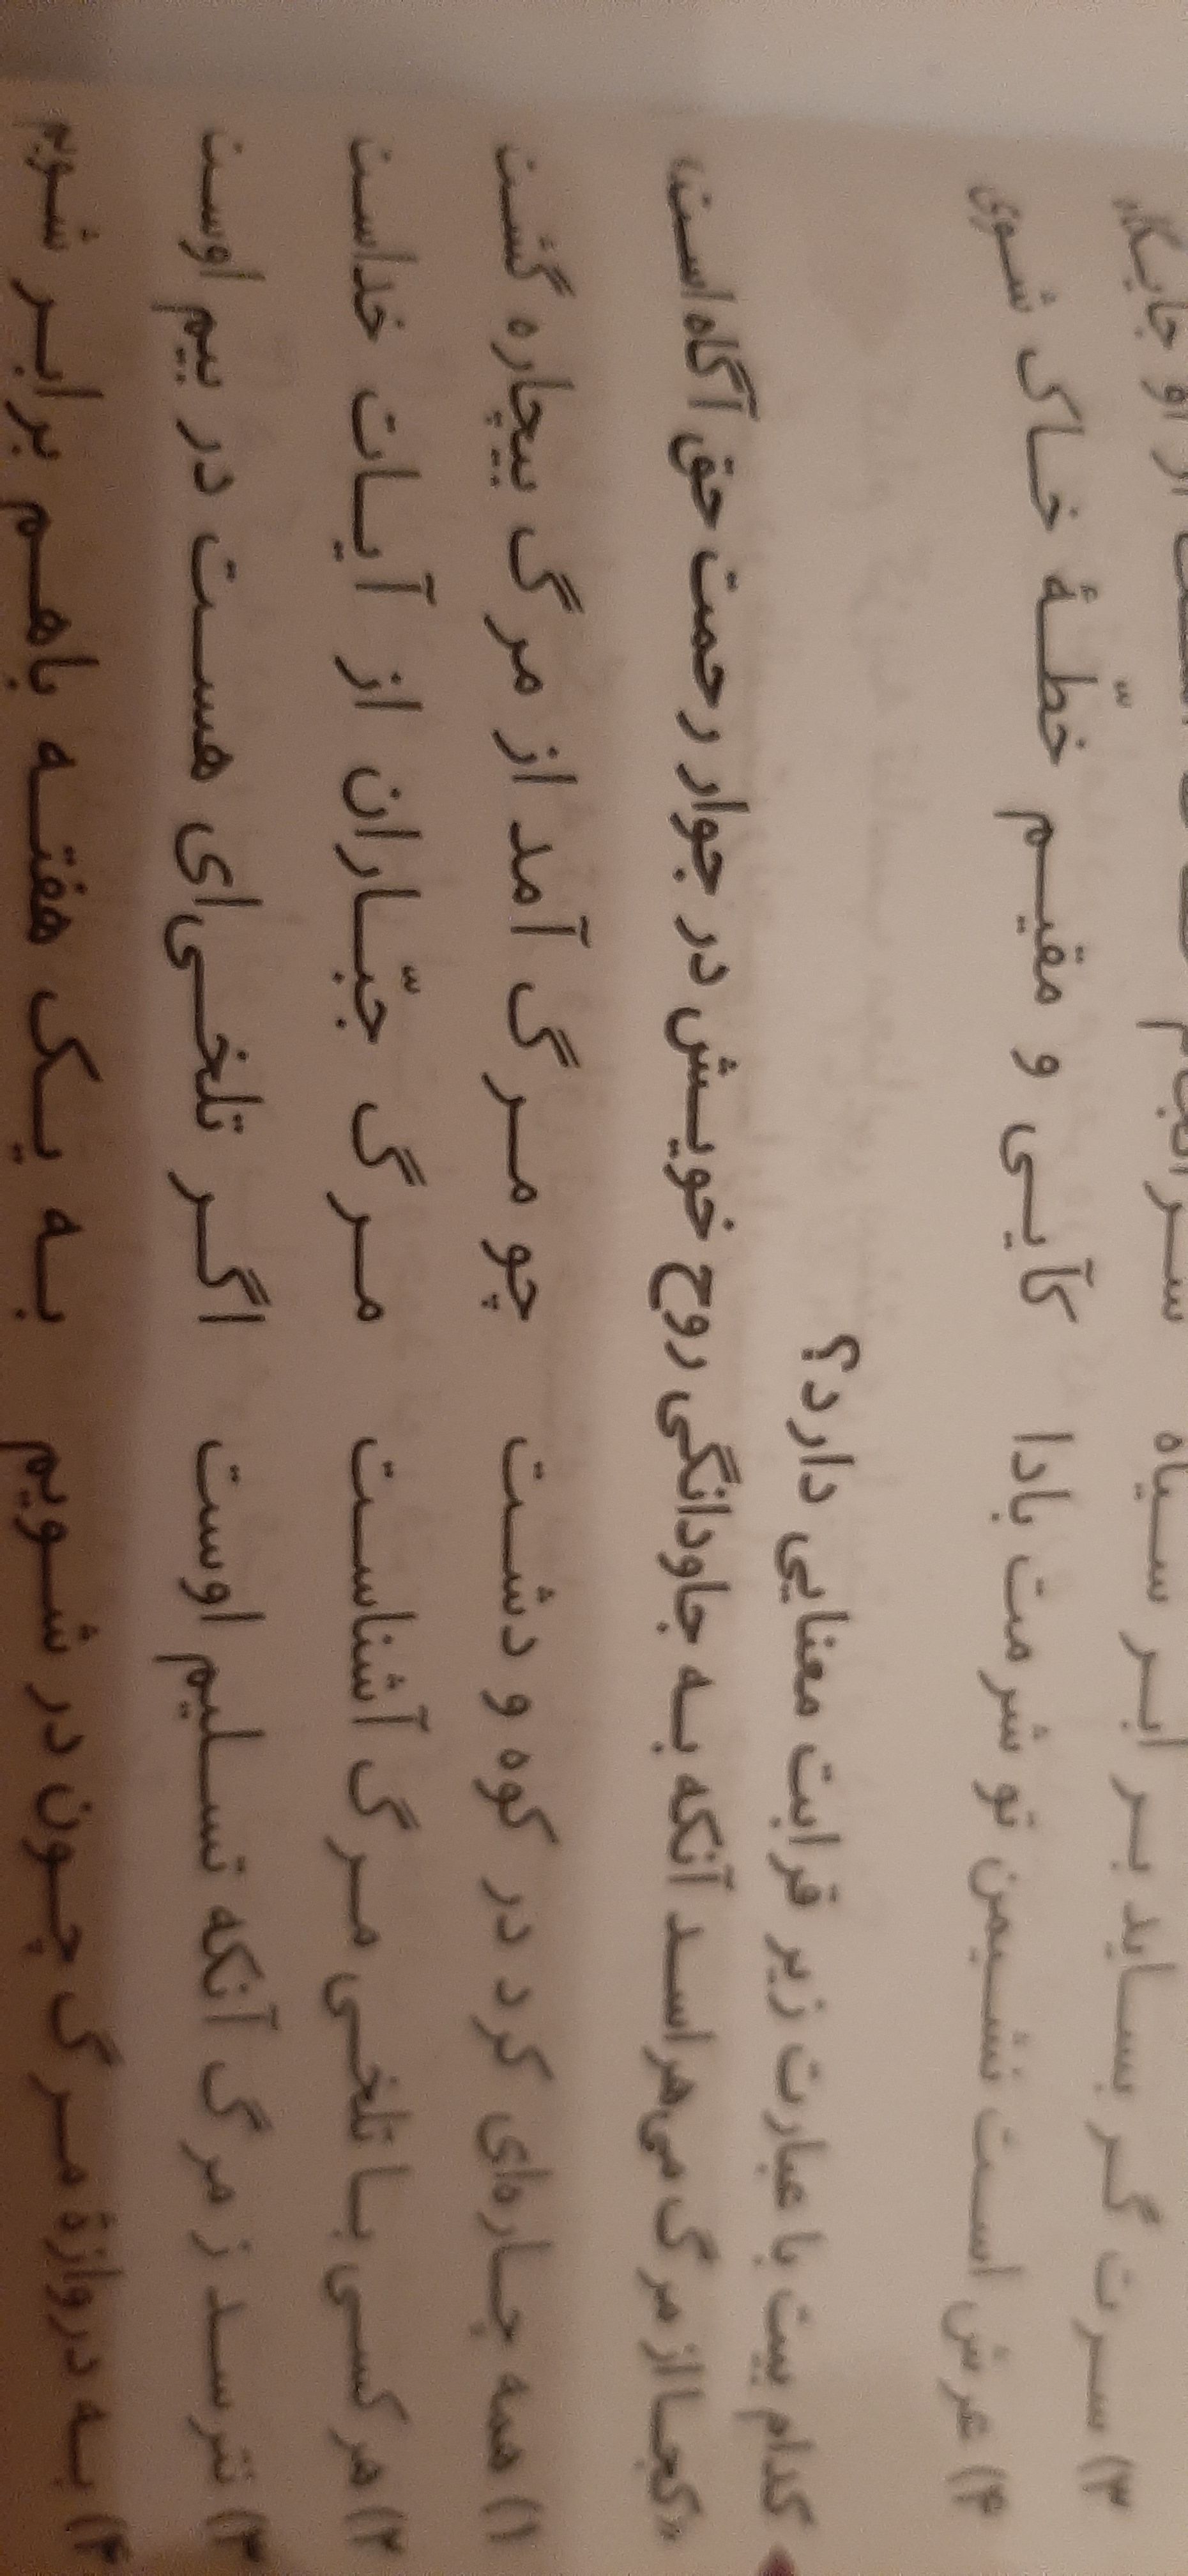 ۳) سرت گر بساید بر ابر سیاه سرانجام از او جایگاه
۴) عرش است نشیمن تو شرمت بادا کآیی و مقیم خطّهٔ خاک شوی
کدام بیت با عبارت زیر قرابت معنایی دارد؟
«کجا از مرگ می‌هراسد آنکه به جاودانگی روح خویش در جوار رحمت حق آگاه است.»
۱) همه چاره‌ای کرد در کوه و دشت چو مرگ آمد از مرگ بیچاره گشت
۲) هر کسی با تلخی مرگ آشناست مرگ جبّاران از آیات خداست
۳) نترسد ز مرگ آنکه تسلیم اوست اگر تلخی‌ای هست در بیم اوست
۴) به دروازهٔ مرگ چون در شویم به یک هفته باهم برابر شویم